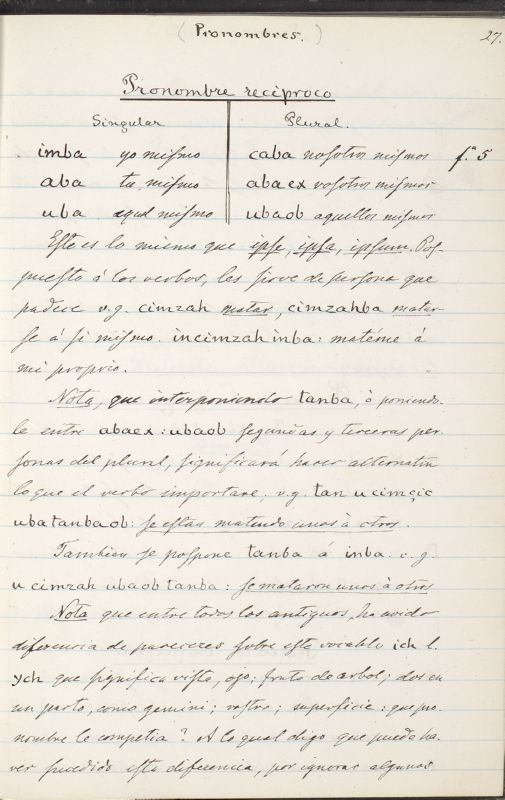 (Pronombres.)
27.
Pronombre reciproco
Singular Plural.
imba yo mismo caba nosotros mismos f.º 5
aba tu mismo abaex vosotros mismos
uba aquel mismo ubaob aquellos mismos
Este es lo mismo que ipse, ipsa, ipsum. Pos-
puesto á los verbos, les sirve de persona que
padece v.g. cimzah matar, cimzahba matar-
se á si mismo. incimzah inba: matéme á
mi proprio.
Nota, que interponiendo tanba, ò poniendo-
le entre abaex: ubaob segundas y terceras per-
sonas del plural, significará hacer alternatim
lo que el verbo importare, v.g. tan u cimçic
uba tanbaob: se estan matando unos à otros.
Tambien se pospone tanba á inba. v.g.
u cimzah ubaob tanba: se mataron unos à otros
Nota que entre todos los antiguos, ha avido
diferencia de pareceres sobre este vocablo ich l.
ych que significa vista, ojo; fruto de arbol; dos en
un parto, como gemini; rostro; superficie: que pro-
nombre le competia? A lo qual digo que puede ha-
ver sucedido esta diferencia, por ignorar algunos